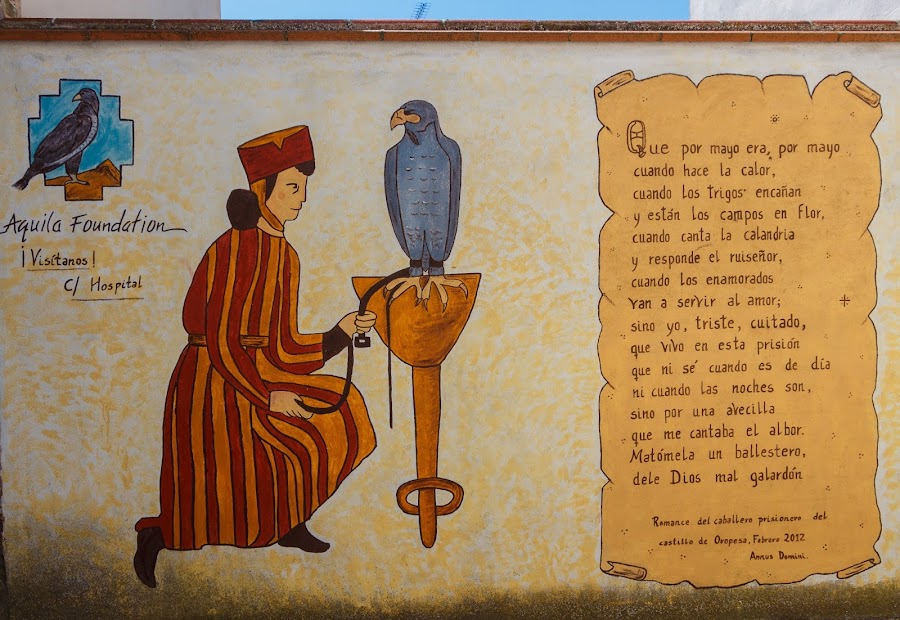 Aquila Foundation
¡Visítanos!
C/ Hospital
Que por mayo era, por mayo
cuando hace la calor,
cuando los trigos encañan
y están los campos en Flor,
cuando canta la calandria
y responde el ruiseñor,
cuando los enamorados
van a servir al amor;
sino yo, triste, cuitado,
que vivo en esta prisión
que ni sé cuando es de día
ni cuando las noches son,
sino por una avecilla
que me cantaba el albor.
Matómela un ballestero,
dele Dios mal galardón
Romance del caballero prisionero del
castillo de Oropesa, Febrero 2012
Annus Domini.